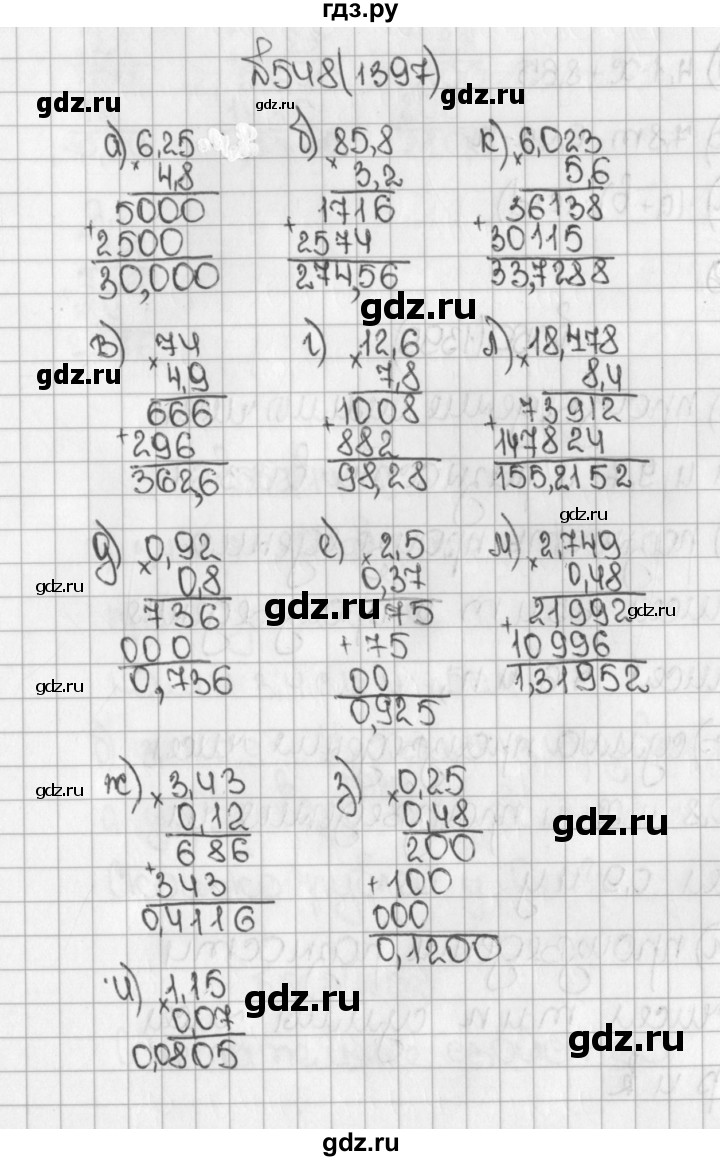 гдз.ру
№548(1397)
gdz.ru
gdz.ru
gdz.ru
а) 6,25 б) 85,8 к) 6,023
× 4,8 × 3,2 × 5,6
5000 1716 36138
+ 2500 + 2574 + 30115
30,000 274,56 33,7288
gdz.ru
в) 74 г) 12,6 л) 18,478
gdz.ru
× 4,9 × 7,8 × 8,4
666 1008 73912
+ 296 + 882 + 147824
362,6 98,28 155,2152
gdz.ru
д) 0,92 е) 2,5 м) 2,749
× 0,8 × 0,37 × 0,48
gdz.ru
gdz.ru
gdz.ru
736 175 21992
000 + 75 + 10996
0,736 00 1,31952
gdz.ru
0,925
ж) 3,43 з) 0,25
gdz.ru
× 0,12 × 0,48
gdz.ru
686 200
+ 343 + 100
0,4116 000
0,1200
и) 1,15
gdz.ru
× 0,07
0,0805
gdz.ru
gdz.ru